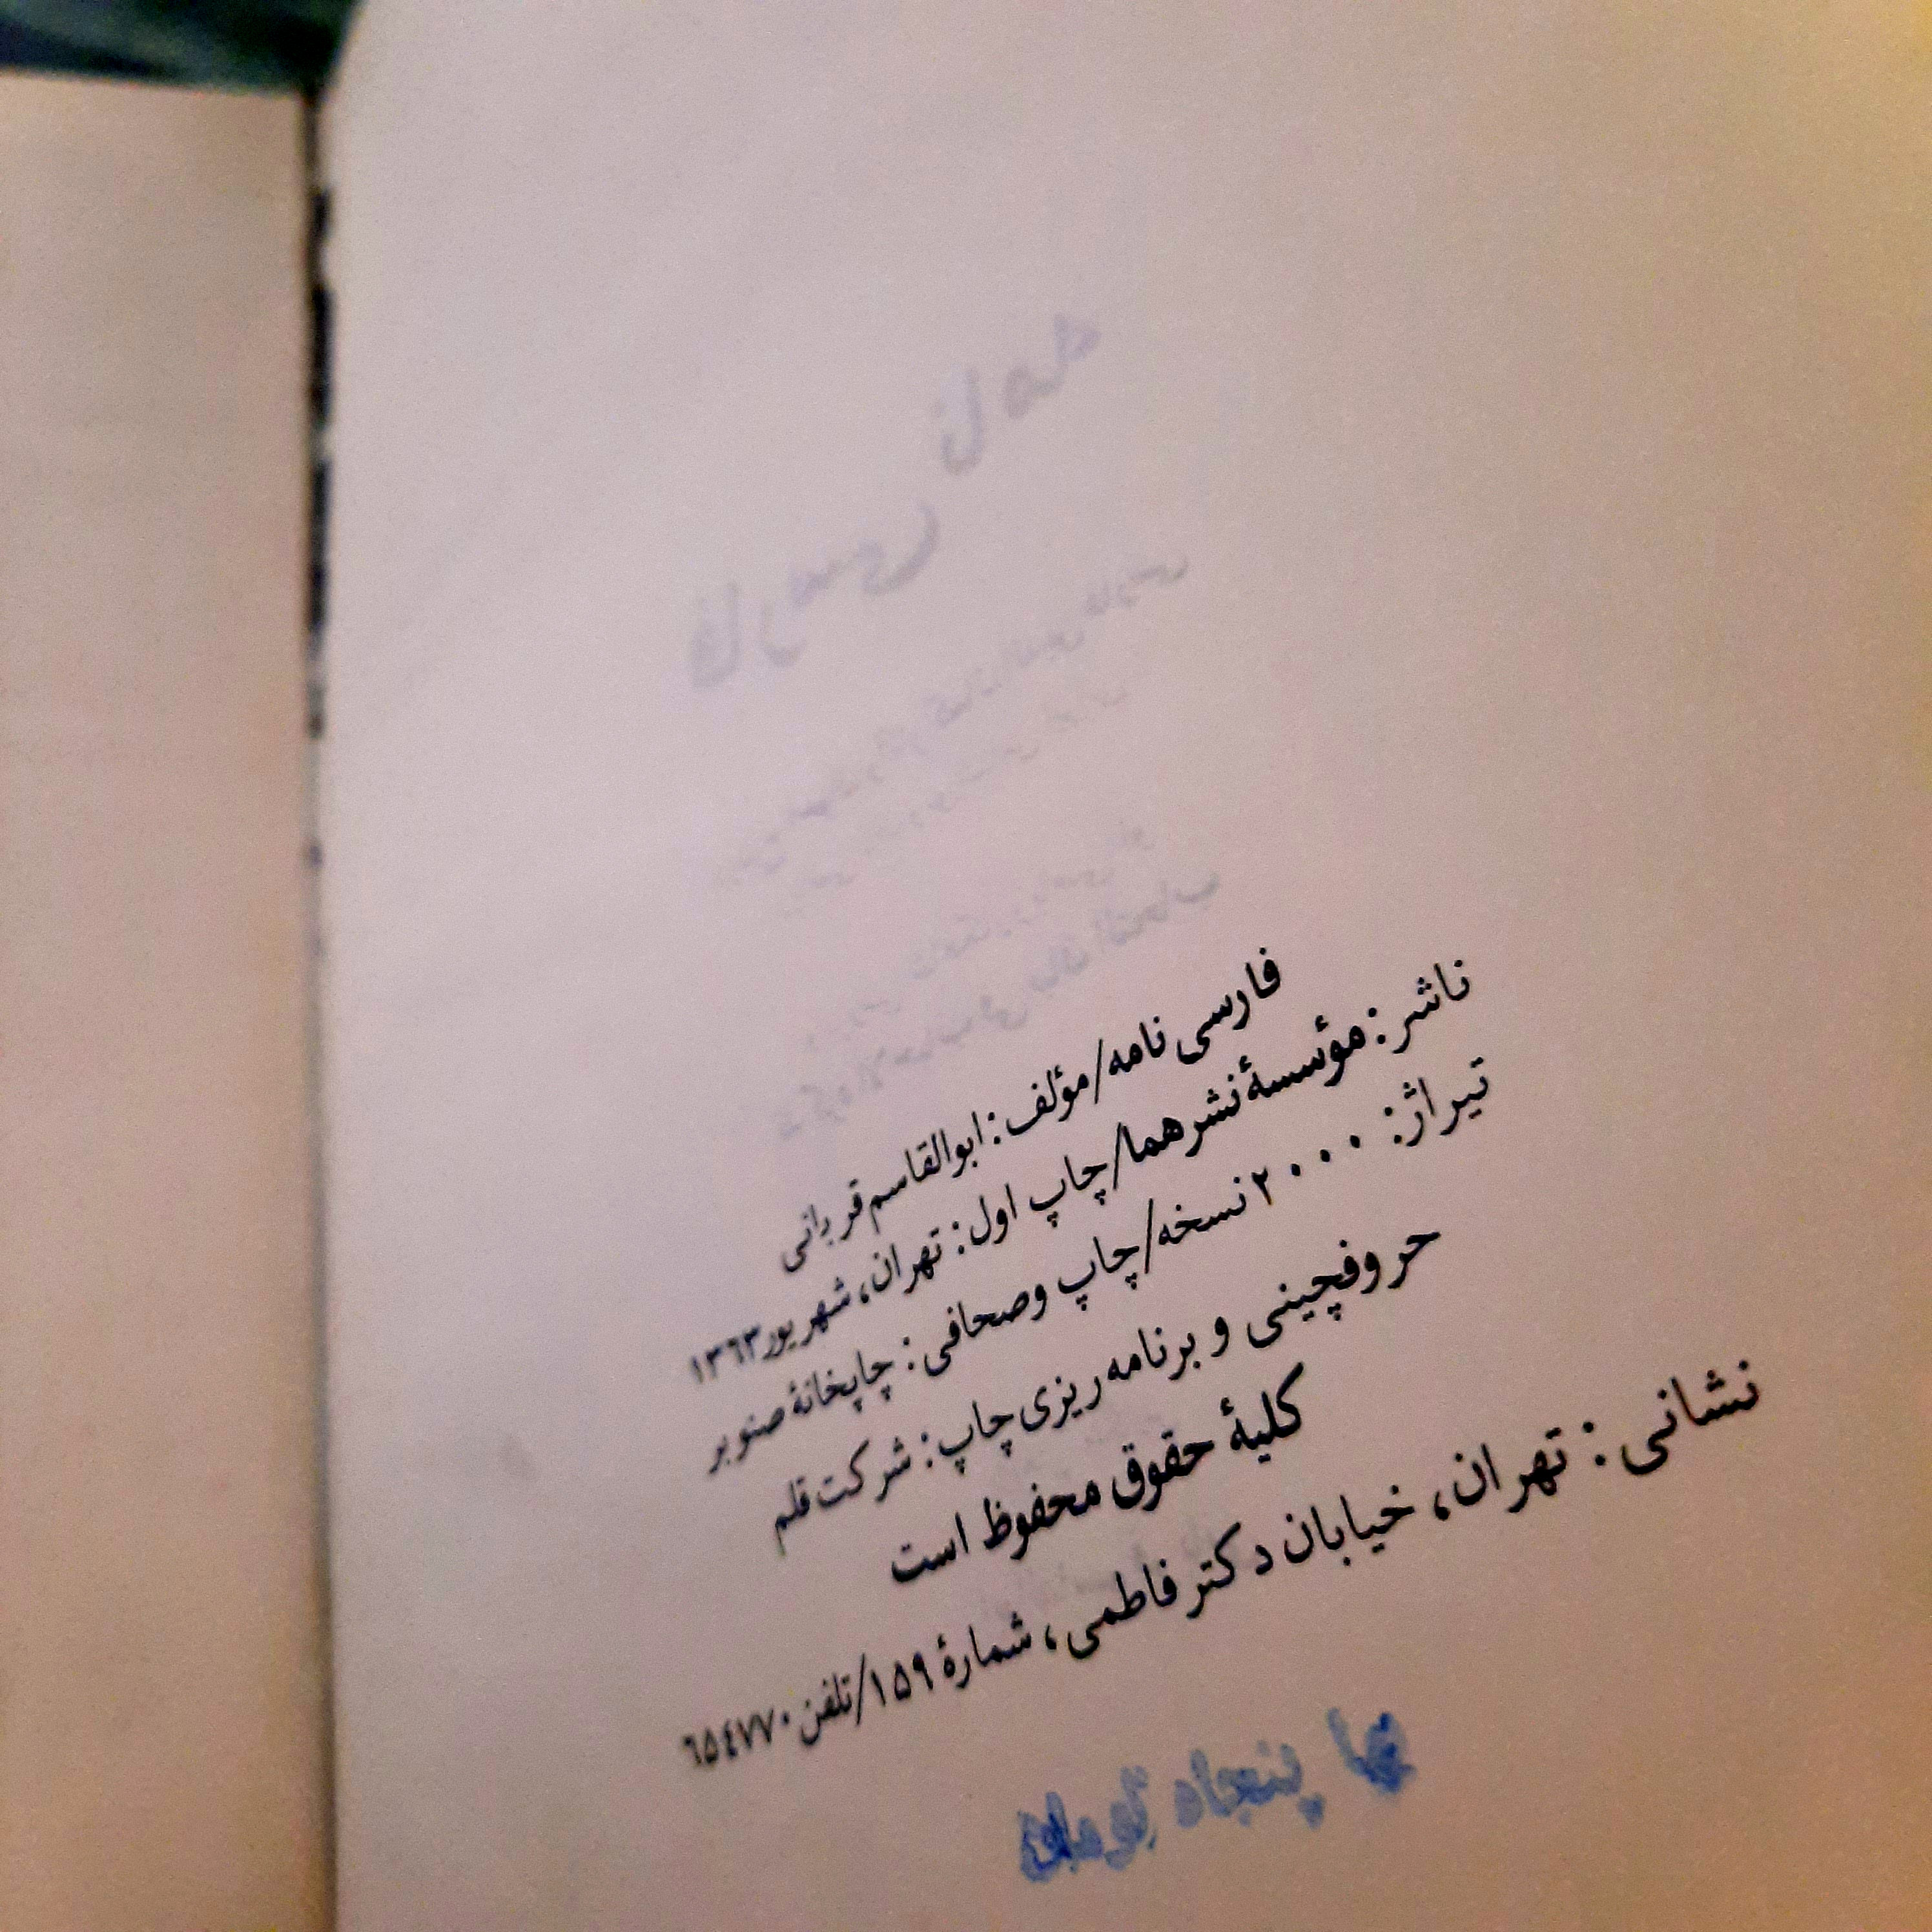 فارسی نامه/مؤلف: ابوالقاسم قربانی
ناشر: مؤسسهٔ نشر هما/چاپ اول: تهران، شهریور ۱۳۶۳
تیراژ: ۲۰۰۰ نسخه/چاپ و صحافی: چاپخانهٔ صنوبر
حروفچینی و برنامه ریزی چاپ: شرکت قلم
کلیهٔ حقوق محفوظ است
نشانی: تهران، خیابان دکتر فاطمی، شمارهٔ ۱۵۹/تلفن ۶۵۴۷۷۰
بها پنجاه تومان